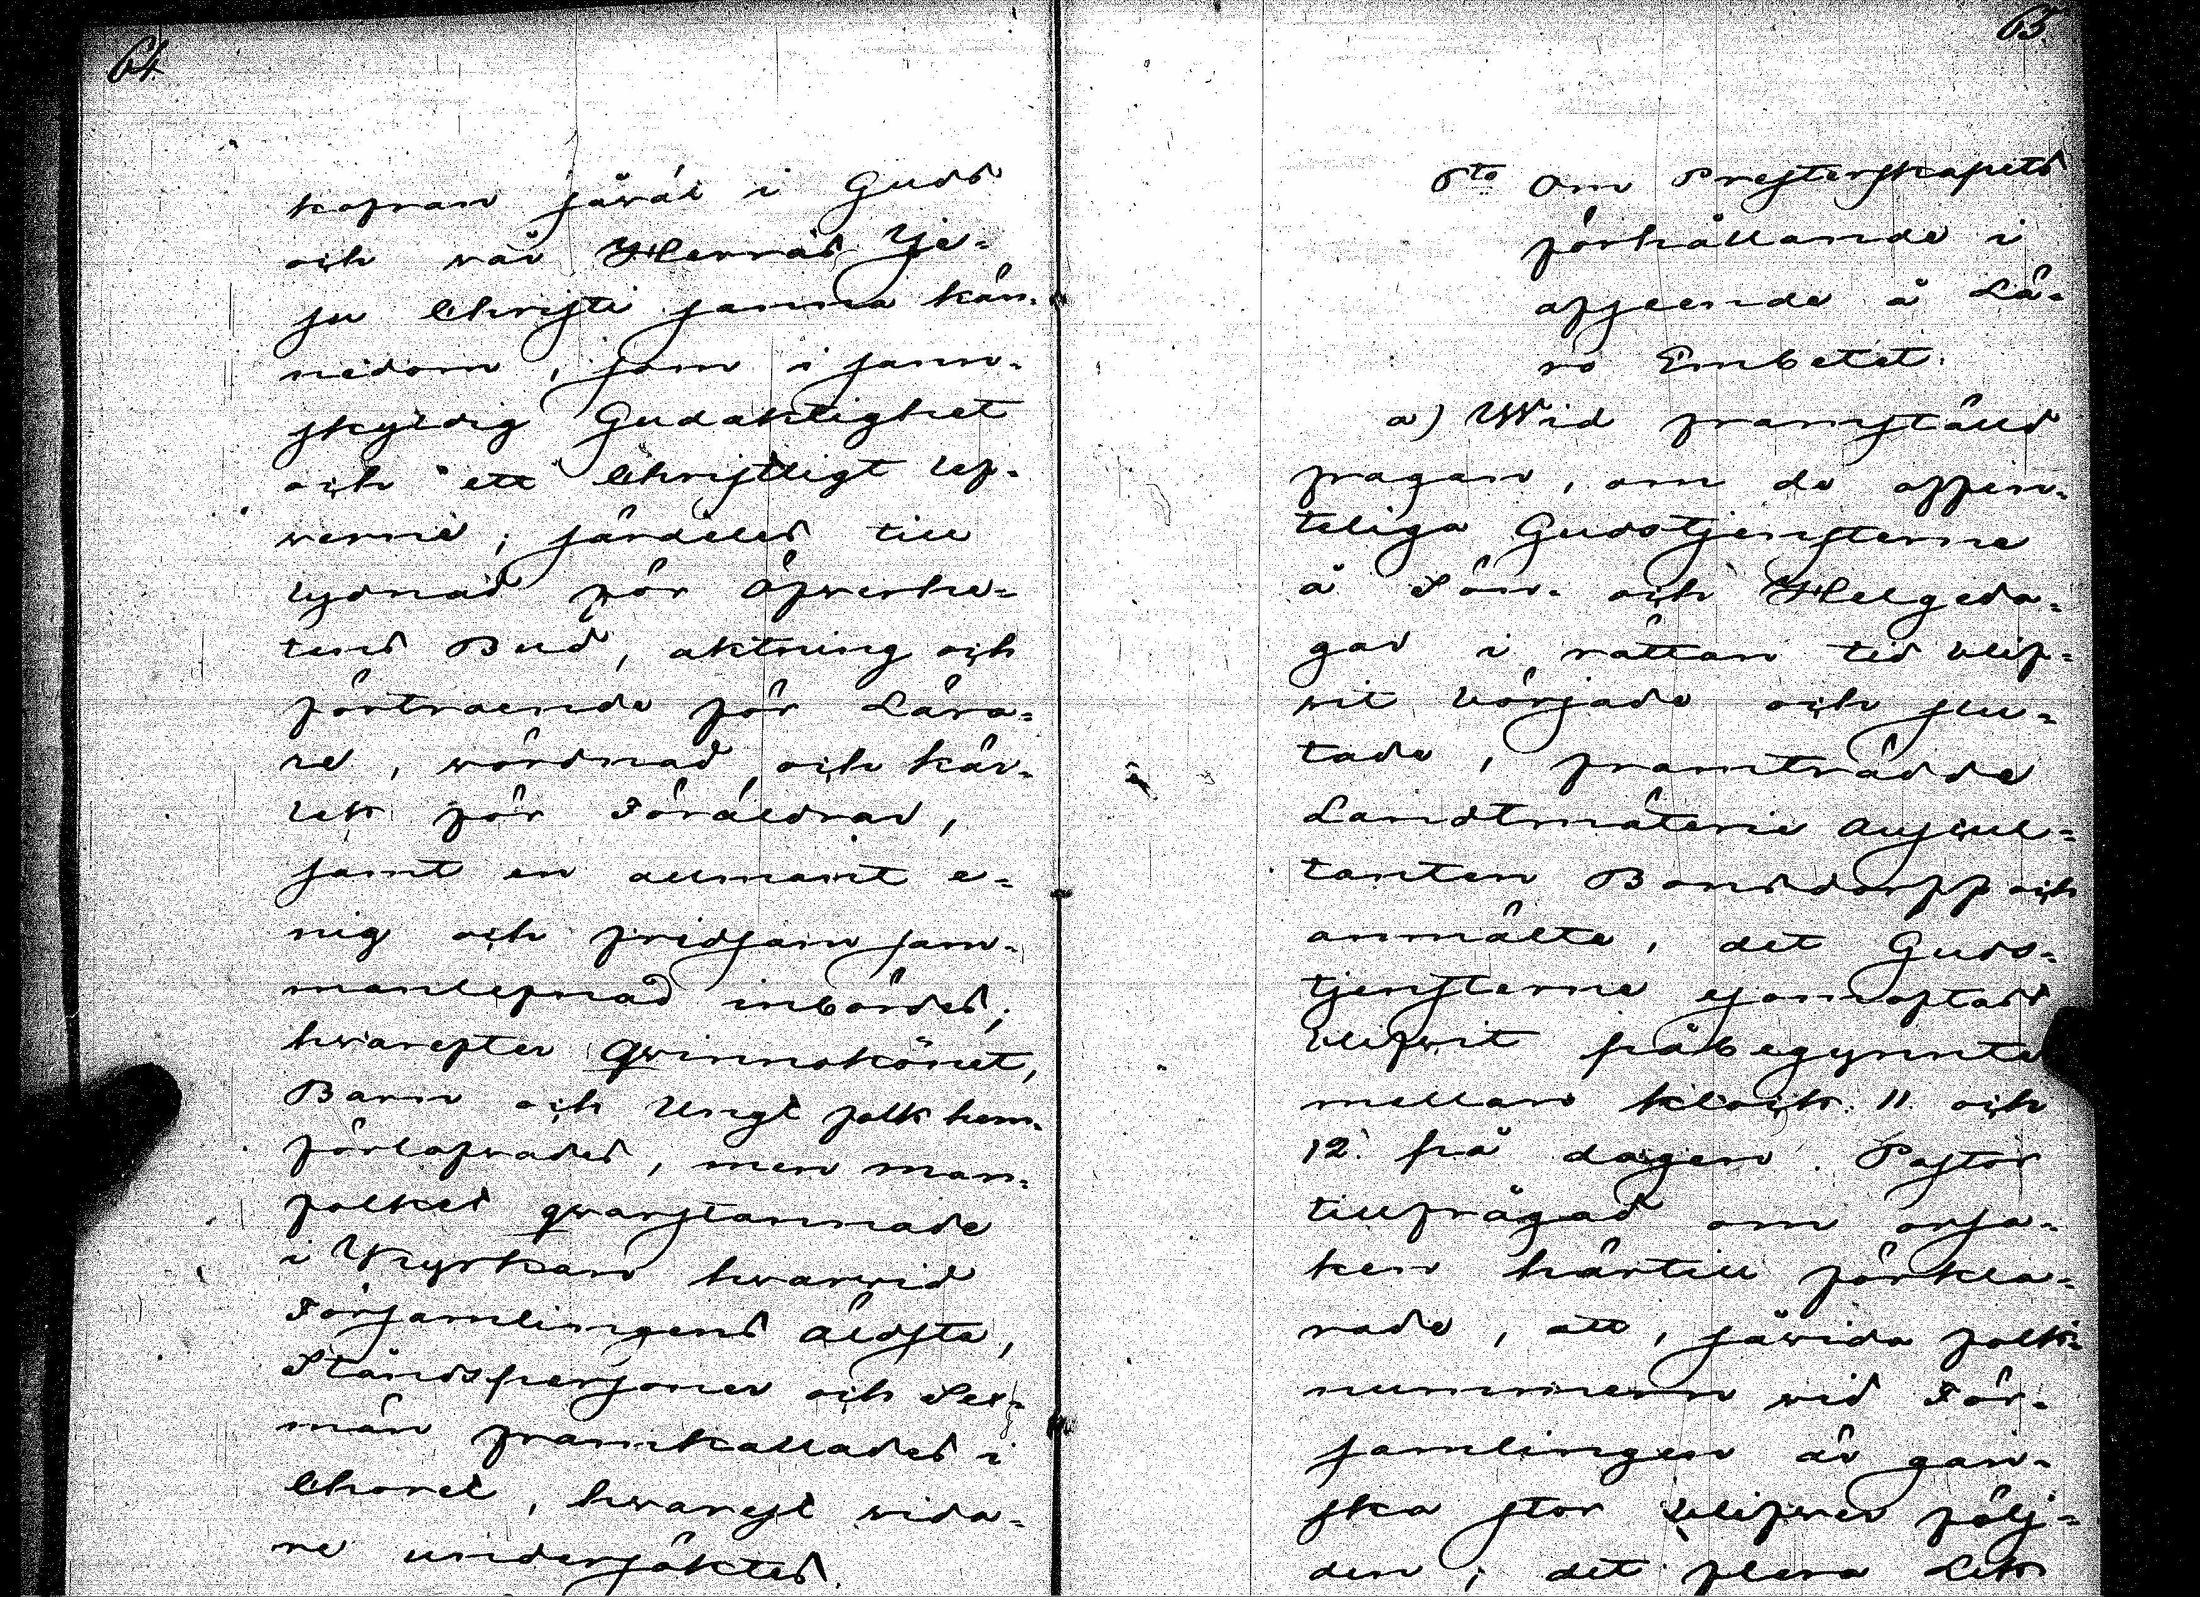 64
kapran såväl i Guds
och vår Herras Je-
su Christi sanna kän-
nedom, som i sann-
skyldig Gudaktighet
och ett Christligt lef-
verne; särdeles till
lydnad för Öfverhe-
tens Bud, aktning och
förtroende för Lära-
re, wördnad och kär-
lek för Föräldrar,
samt en allmänt e-
nig och fridsam sam-
manlefnad inbördes;
hwarefter Qwinnokönet,
Barn och Ungt folk hem-
förlofwades, men man-
folket qwarstannade
i Kyrkan hwarwid
Församlingens äldsta,
Ståndspersoner och Sex-
män framkallades i
Choret, hwarest wida-
re undersöktes.
65
6to Om Presterskapets
förhållande i
afseende å Lä-
ro Embetet.
a) Wid framställd
fragan, om de offen-
teliga Gudstjensterne
å Sön- och Helgeda-
gar i rättan tid blif-
wit började och slu-
tade, framträdde
Landtmäterie Auscul-
tanten Bonsdorff och
anmälte, det Guds-
tjensterne esomoftast
blifwit påbegynnte
mellan klock. 11 och
12 på dagen. Pastor
tillfrågad om orsa-
ken härtill förkla-
rade, att, såwida folk-
nummern wid För-
samlingen är gan-
ska stor blifwer följ-
den, det flera Lik